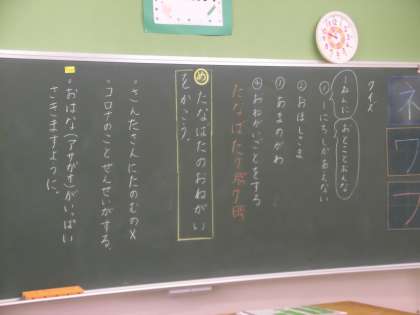 ネ
ワ
フ
クイズ
1ねんに
おとことおんな
①1にちしかあえない
②おほしさま
③あまのがわ
④おねがいごとをする
たなばた7月7日
め たなばたのおねがい
をかこう。
・さんたさんにたのむの×
・コロナのことぜんせいがする。
・おはな(アサガオ)がいっぱい
さきますように。